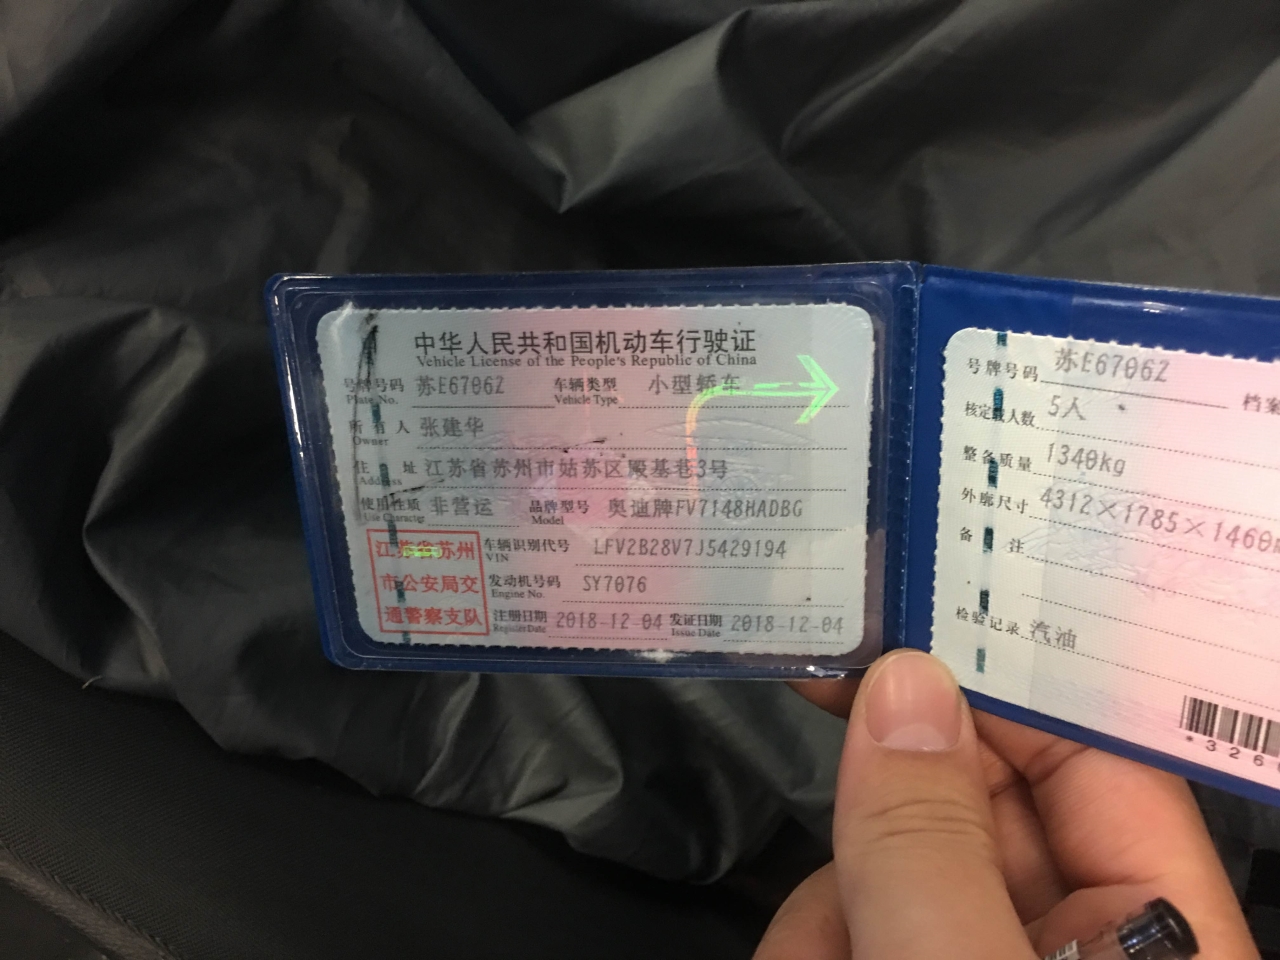 中华人民共和国机动车行驶证
Vehicle License of the People's Republic of China
号牌号码 苏E67062 车辆类型 小型轿车
Plate No. Vehicle Type
所有人 张建华
Owner
住址 江苏省苏州市姑苏区殿基巷3号
Address
使用性质 非营运 品牌型号 奥迪牌FV7148HADBG
Use Character Model
江苏省苏州
市公安局交
通警察支队
车辆识别代号 LFV2B28V7J5429194
VIN
发动机号码 SY7076
Engine No.
注册日期 2018-12-04 发证日期 2018-12-04
Register Date Issue Date
号牌号码 苏E67062 档案
核定载人数 5人
整备质量 1340kg
外廓尺寸 4312×1785×1460
备注
检验记录 汽油
*326